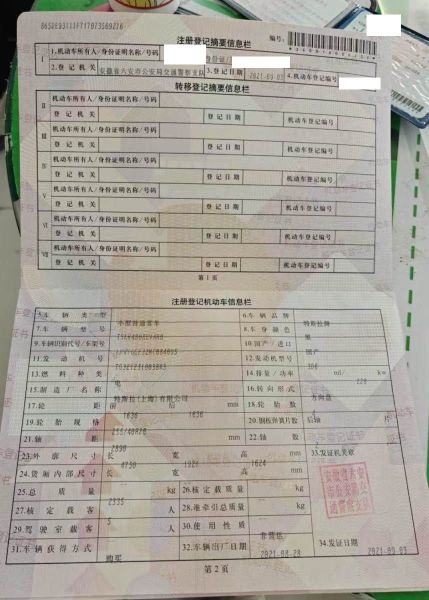 注册登记摘要信息栏
编号:
I 1.机动车所有人/身份证明名称/号码 身份证/
2.登记机关 安徽省六安市公安局交通警察支队 3.登记日期 2021-09-03 4.机动车登记编号
转移登记摘要信息栏
II 机动车所有人/身份证明名称/号码
登记机关 登记日期 机动车登记编号
III 机动车所有人/身份证明名称/号码
登记机关 登记日期 机动车登记编号
IV 机动车所有人/身份证明名称/号码
登记机关 登记日期 机动车登记编号
V 机动车所有人/身份证明名称/号码
登记机关 登记日期 机动车登记编号
VI 机动车所有人/身份证明名称/号码
登记机关 登记日期 机动车登记编号
VII 机动车所有人/身份证明名称/号码
登记机关 登记日期 机动车登记编号
第1页
注册登记机动车信息栏
5.车辆类型 小型普通客车 6.车辆品牌 特斯拉牌
7.车辆型号 8.车身颜色 黑
9.车辆识别代号/车架号 10.国产/进口 国产
11.发动机号 12.发动机型号
13.燃料种类 电 14.排量/功率 ml/ kw
15.制造厂名称 特斯拉(上海)有限公司 16.转向形式 方向盘
17.轮距 前 1636 后 1636 mm 18.轮胎数
19.轮胎规格 255/40R20 20.钢板弹簧片数 后轴 片
21.轴距 2890 mm 22.轴数
23.外廓尺寸 长 4750 宽 高 1624 mm 33.发证机关章
24.货厢内部尺寸 长 宽 高 mm
25.总质量 2335 kg 26.核定载质量 kg
27.核定载客 5 人 28.准牵引总质量 kg
29.驾驶室载客 人 30.使用性质 非营运
31.车辆获得方式 购买 32.车辆出厂日期 2021-08-28 34.发证日期 2021-09-03
第2页